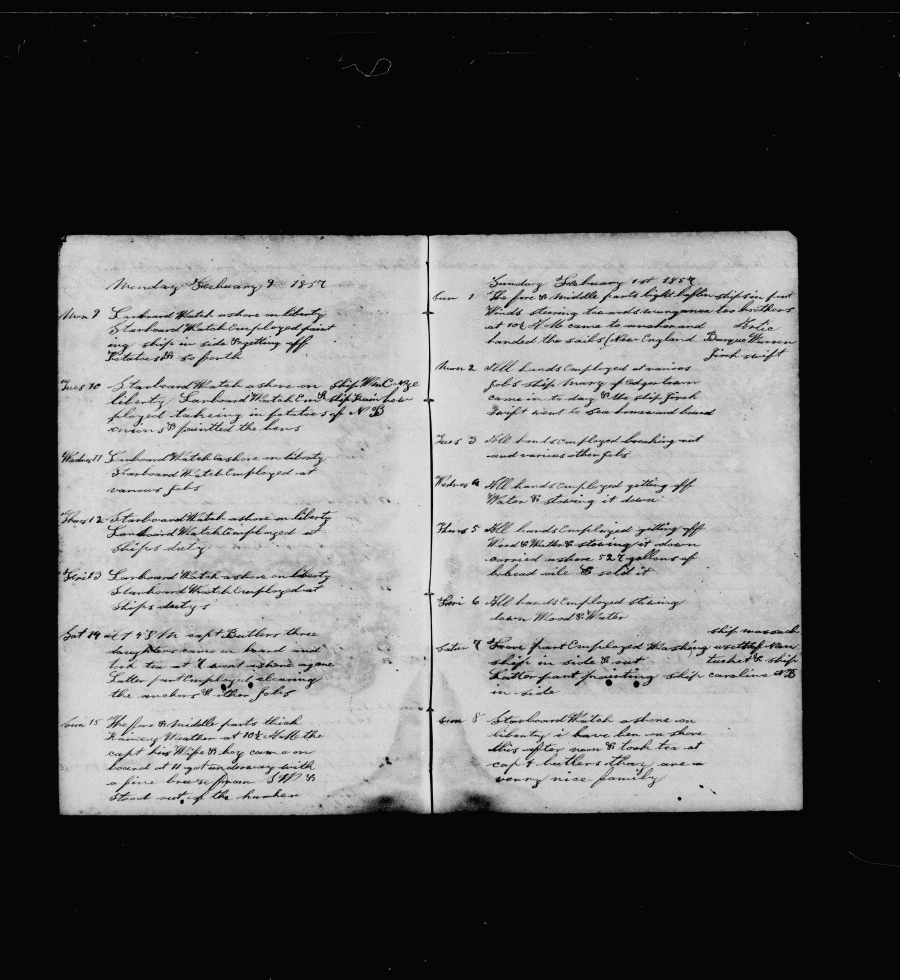 Monday February 9 1857
Mon 9 Larboard Watch a shore on liberty
Starboard Watch Employed paint
ing ship in side & getting off
Potatoes & so forth
Tues 10 Starboard Watch a shore on ship Wm C Nye
liberty Larboard Watch Em ship
ployed takeing in potatoes of N B
onions & paintted the
Wednes 11 Larboard Watch a shore on liberty
Starboard Watch Employed at
various Jobs
Thurs 12 Starboard Watch a shore on liberty
Larboard Watch Employed at
ships duty
Fri 13 Larboard Watch a shore on liberty
Starboard Watch Employed at
ships duty s
Sat 14 at 4 P M capt Butlers three
daughters came on board and
took tea at 7 went ashore agane
Latter part Employed clearing
the anchors & other Jobs
Sun 15 The fore & middle parts thick
Rainey Weather at 10½ A M the
capt his Wife & boy came on
board at 11 got underway with
a fine breeze from S W &
stood out of the harber
Sunday February 1st 1857
Sun 1 The fore & middle parts light baflen ships in port
Winds steering towards two brothers
at 10½ A M came to anchor and
handed the sails New England Barque Warren
Jireh swift
Mon 2 All hands Employed at various
Jobs ship Mary of Edgartown
came in to day & the ship Jireh
Swift went to sea homeward bound
Tues 3 All hands Employed breaking out
and various other Jobs
Wednes 4 All hands Employed getting off
Water & stowing it down
Thurs 5 All hands Employed getting off
Wood & Water & stowing it down
carried a shore 527 gallons of
oile & sold it
Fri 6 All hands Employed stowing
down Wood & Water
ship
Satur 7 Fore part Employed Washing
ship in side & out tucket & ship
Latter part painting ship caroline N B
in side
Sun 8 Starboard Watch a shore on
liberty i have ben on shore
this after noon & took tea at
capt butlers thay are a
verry nice family